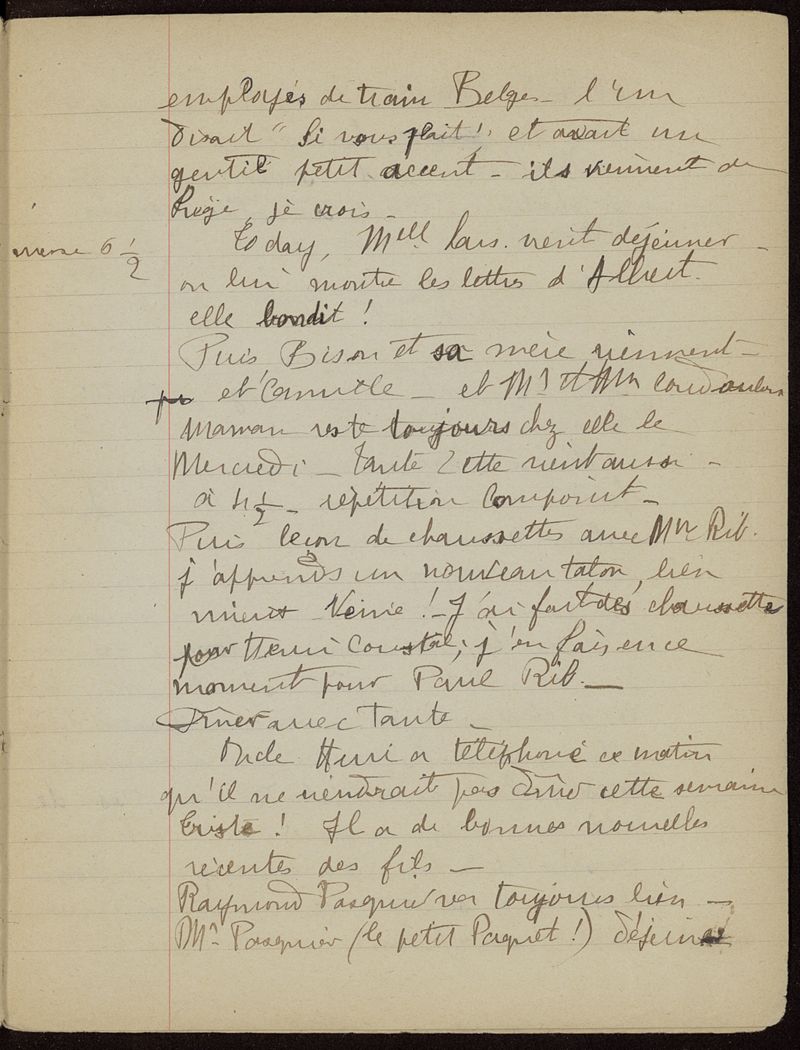 employés de train Belges – l'un
disait "Si vous plait", et avait un
gentil petit accent – ils viennent de
Liège, je crois –
6 1/2
Today, Mell Laus. vient déjeuner –
on lui montre les lettres d'Albert.
elle bondit !
Puis Bison et sa mère viennent –
et Camille – et Mr et Mm
Maman reste toujours chez elle le
Mercredi – tante Zette vient aussi –
à 4 1/2 – répétition Compoint –
Puis leçon de chaussettes avec Mme Rib.
j'apprends un nouveau talon, bien
mieux Veine ! – J'ai fait des chaussettes
pour Henri Coustal ; j'en fais en ce
moment pour Paul Rib. –
Dîner avec Tante –
Oncle Henri a téléphoné ce matin
qu'il ne viendrait pas dîner cette semaine
triste ! Il a de bonnes nouvelles
récentes des fils –
Raymond Pasquier va toujours bien –
Mr Pasquier (le petit Paquet !) déjeuna